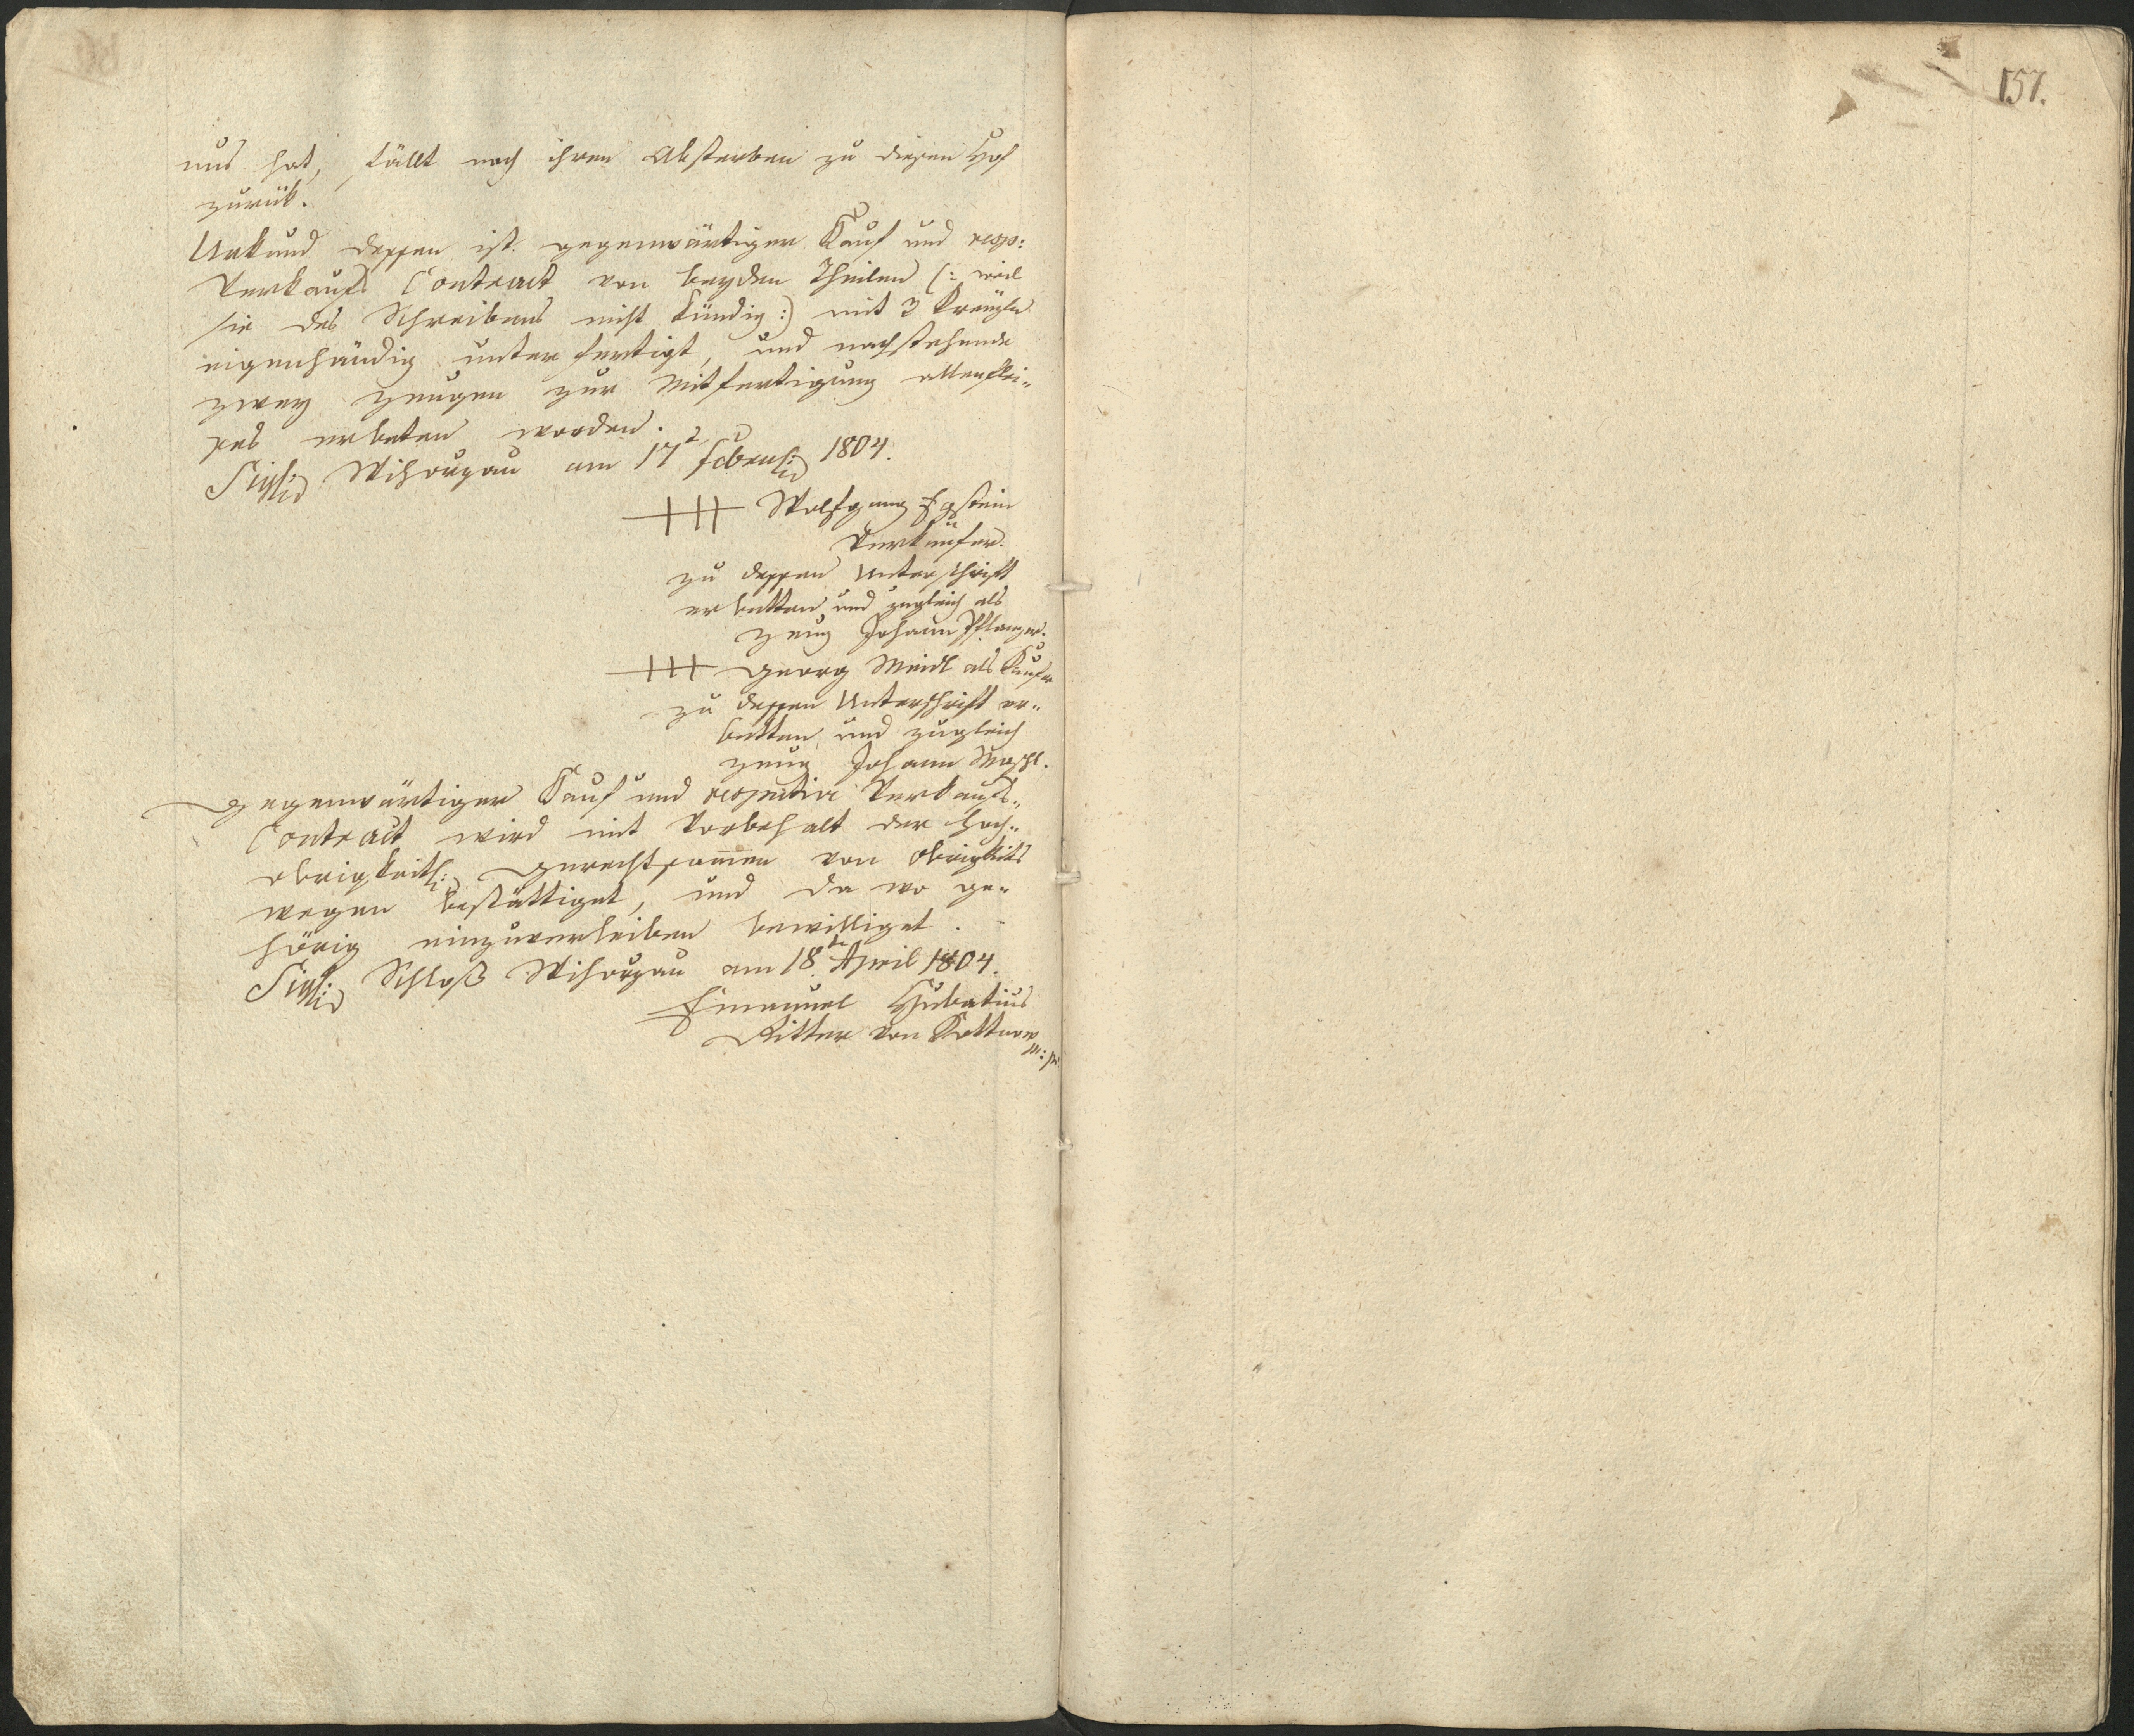 157.
nus hat, fällt nach ihren Absterben zu diesen Hof
zurük.
Urkund dessen ist gegenwärtiger Kauf und resp:
Verkaufs Contract von beyden Theilen (: weil
sie des Schreibens nicht kündig :) mit 3 Kreuzln
eigenhändig unterfertigt, und nachstehende
zwey Zeugen zur Mitfertigung allenflei„
ßes erbeten worden.
Sigl: Wihorzau am 17t Februar 1804.
+++ Wolfgang Egstein
Verkäufer.
zu dessen Unterschrift
erbetten und zugleich als
Zeug Johann Pflanzer.
+++ Georg Meidl als Kaufer
zu dessen Unterschrift er„
betten, und zugleich
Zeug Johann
Gegenwärtiger Kauf und respective Verkaufs„
Contract wird mit Vorbehalt der hoch„
obrigkeitl: Gerechtsamen von Obrigkeits
wegen bestättiget, und da wo ge„
hörig einzuverleiben bewilliget.
Sigl: Schloß Wihorzau am 18te April 1804.
Emanuel Hubatius
Ritter von Kottnow
m:p: